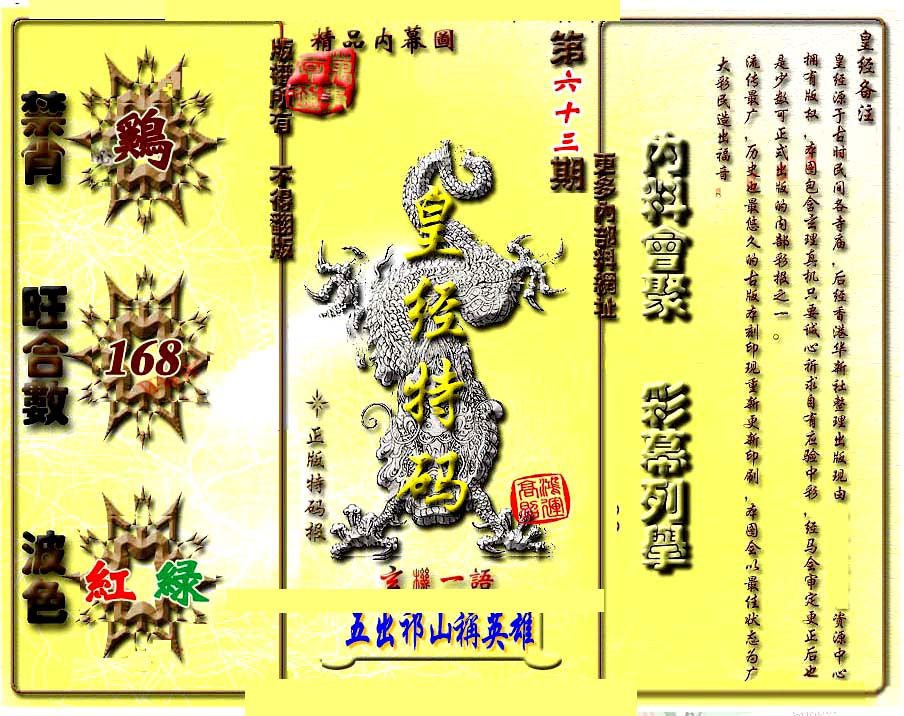 皇经备注
皇经源于古时民间各寺庙，后经香港华新社整理出版现由 资源中心
拥有版权，本图包含玄理真机只要诚心祈求自有应验中彩，经马会审定更正后也
是少数可正式出版的内部彩报之一。
流传最广，历史也最悠久的古版本刻印现重新更新印刷，本图会以最佳状态为广
大彩民造出福音
內料會聚
彩幕列舉
更多內部料網址
第六十三期
精品内幕圖
皇经特码
正版特码报
鴻運高照
玄機一語
五出祁山稱英雄
版權所有 不得翻版
禁肖
鷄
旺合數
168
波色
紅 緑